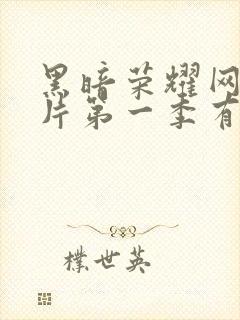 黑暗荣耀网
片第一季有
樸世英